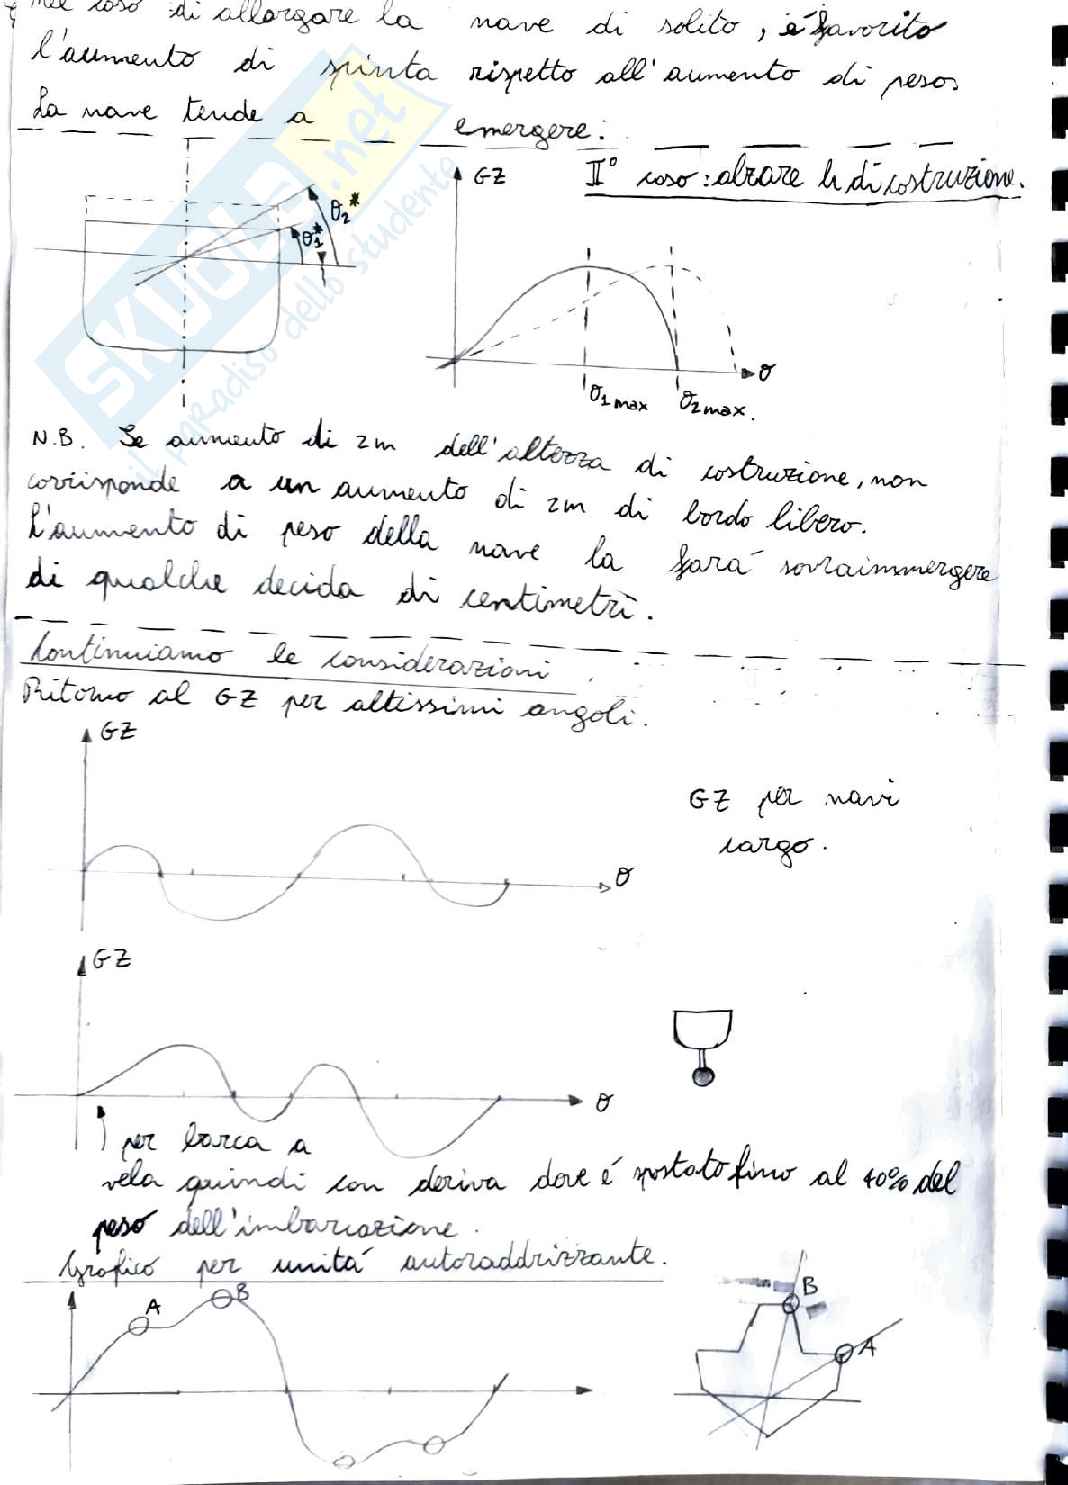 nel caso di allargare la nave di solito, é favorito
l'aumento di spinta rispetto all'aumento di peso.
La nave tende a emergere.
GZ
II° caso: alzare h di costruzione.
θ2*
θ1*
θ
θ1max
θ2max.
N.B. Se aumento di 2m dell'altezza di costruzione, non
corrisponde a un aumento di 2m di bordo libero.
L'aumento di peso della nave la fará sovraimmergere
di qualche decida di centimetri.
Continuiamo le considerazioni
Ritorno al GZ per altissimi angoli.
GZ
GZ per navi
cargo.
θ
GZ
θ
per barca a
vela quindi con deriva dove é spostato fino al 40% del
peso dell'imbarcazione.
Grafico per unitá autoraddrizzante.
A
B
B
A
SKUOLA.net
il paradiso dello studente